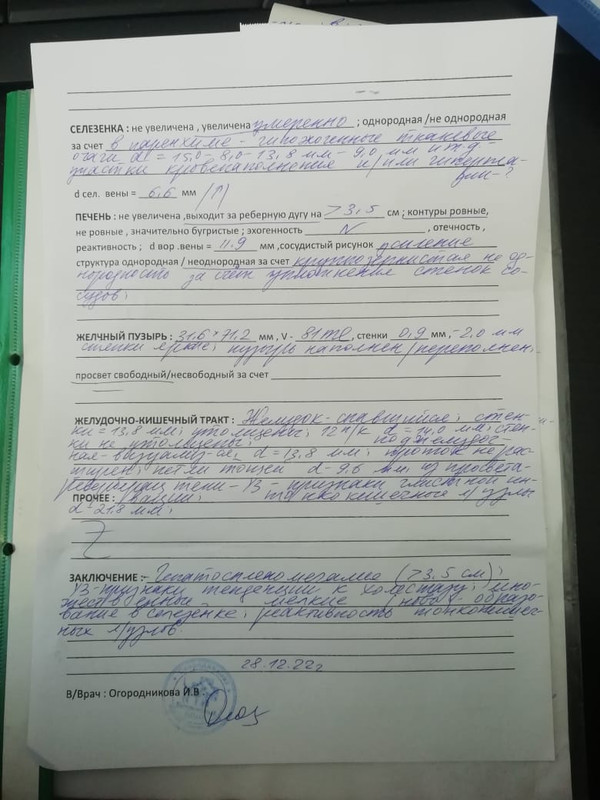 СЕЛЕЗЕНКА : не увеличена , увеличена умеренно ; однородная /не однородная
за счет в паренхиме - гипоэхогенные тканевые
очаги d = 15,0 - 8,0 - 13,8 мм - 9,0 мм и т д
участки кровенаполнения и/или сегмента-
ции - ?
d сел. вены = 6,6 мм /N/
ПЕЧЕНЬ : не увеличена ,выходит за реберную дугу на >3,5 см ; контуры ровные,
не ровные , значительно бугристые ; эхогенность N , отечность ,
реактивность ; d вор .вены = 11.9 мм ,сосудистый рисунок усиление
структура однородная / неоднородная за счет крупнозернистая не од-
нородность за счет уплотнения стенок со-
судов.
ЖЕЛЧНЫЙ ПУЗЫРЬ : 31.6 * 71.2 мм , V - 81 ml , стенки 0,9 мм - 2,0 мм
стенки яркие; пузырь наполнен /переполнен.
просвет свободный/несвободный за счет
ЖЕЛУДОЧНО-КИШЕЧНЫЙ ТРАКТ : Желудок - спавшийся; стен-
ки = 13,8 мм; утолщены; 12 п/к d = 14,0 мм; стен-
ки не утолщены; поджелудоч-
ная - визуализ-ся; d = 13,8 мм; проток не рас-
ширен; петли тощей d - 9.6 мм; из просвета
реверберац тени - УЗ - признаки глистной ин-
ПРОЧЕЕ : вазии; тонкокишечные л/узлы
d - 21,8 мм;
ЗАКЛЮЧЕНИЕ :- Гепатоспленомегалия (>3.5 см);
УЗ-признаки тенденции к холестазу; мно-
жественные мелкие новообразо-
вание в селезенке; реактивность тонкокишеч-
ных л/узлов.
28.12.22г
В/Врач : Огородникова И.В